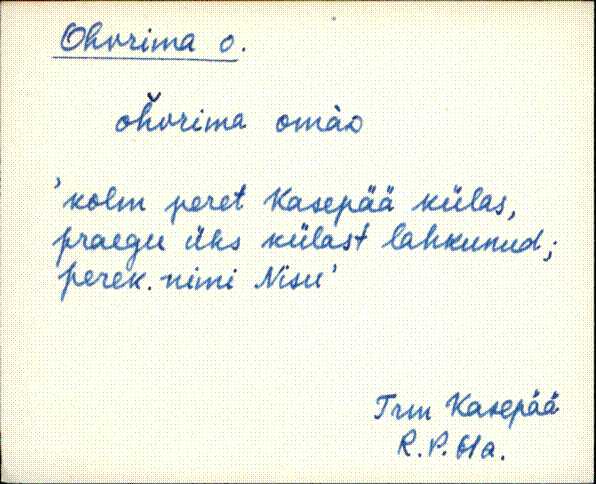 Ohvrima o.
oȟvrima omàs
'kolm peret Kasepää külas,
praegu üks külast lahkunud;
perek. nimi Nisu'
Trm Kasepää
R.P. 61a.